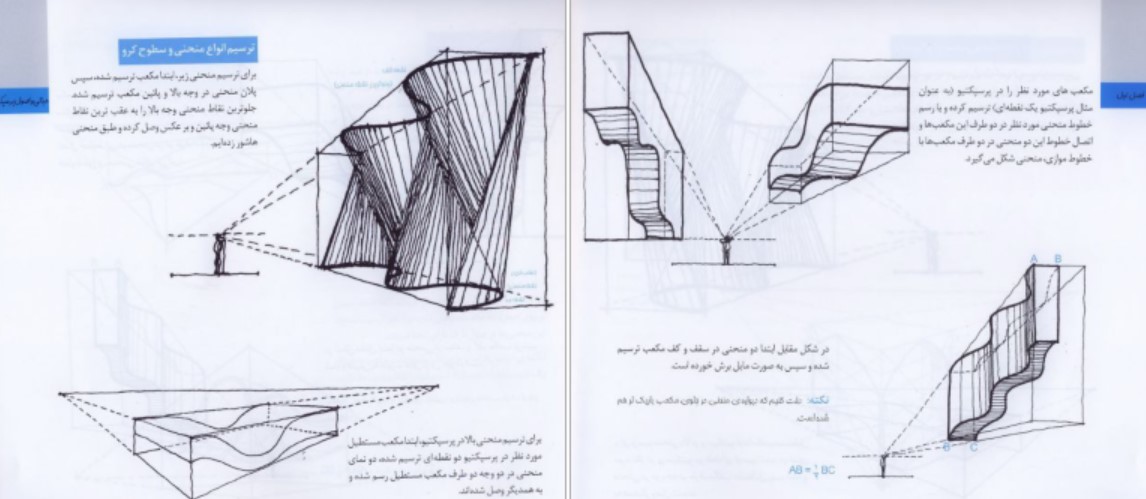 ترسیم انواع منحنی و سطوح کرو
برای ترسیم منحنی زیر، ابتدا مکعب ترسیم شده، سپس
پلان منحنی در وجه بالا و پائین مکعب ترسیم شده،
جلوترین نقاط منحنی وجه بالا را به عقب ترین نقاط
منحنی وجه پائین و بر عکس وصل کرده و طبق منحنی
هاشور زده‌ایم.
برای ترسیم منحنی بالا در پرسپکتیو، ابتدا مکعب مستطیل
مورد نظر در پرسپکتیو دو نقطه‌ای ترسیم شده، دو نمای
منحنی در دو وجه دو طرف مکعب مستطیل رسم شده و
به همدیگر وصل شده‌اند.
مکعب های مورد نظر را در پرسپکتیو (به عنوان
مثال پرسپکتیو یک نقطه‌ای) ترسیم کرده و با رسم
خطوط منحنی مورد نظر در دو طرف این مکعب‌ها و
اتصال خطوط این دو منحنی در دو طرف مکعب‌ها با
خطوط موازی، منحنی شکل می‌گیرد.
A B
در شکل مقابل ابتدا دو منحنی در سقف و کف مکعب ترسیم
شده و سپس به صورت مایل برش خورده است.
نکته: دقت کنیم که دیواره‌ی منحنی در جلوی مکعب باریک تر هم
شده است.
B C
AB = BC